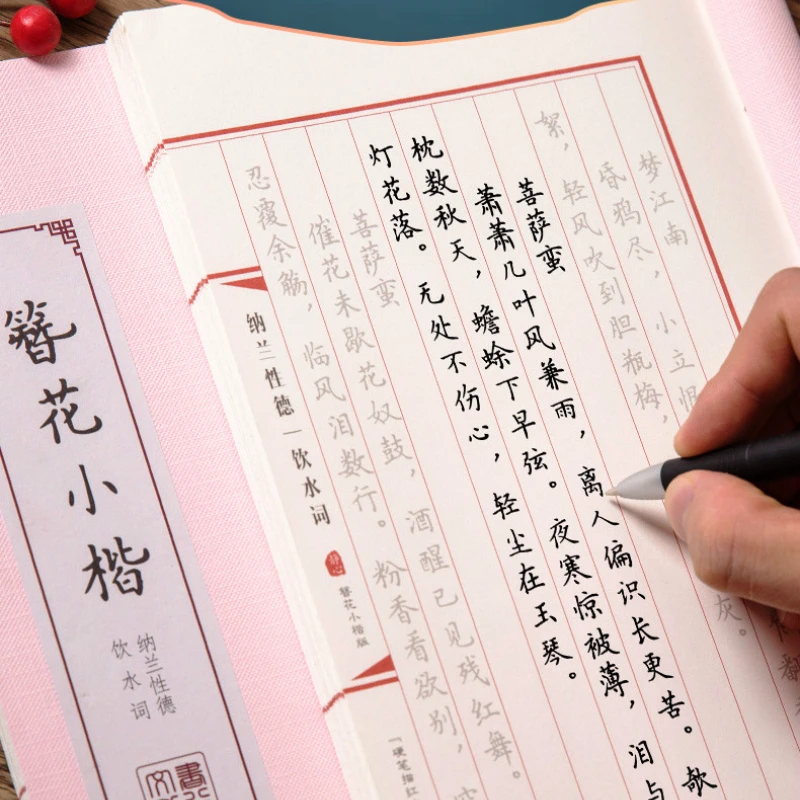 梦江南
昏鸦尽，小立恨
翻
絮，轻风吹到胆瓶梅，
灰。
菩萨蛮
萧萧几叶风兼雨，离人偏识长更苦。欹
枕数秋天，蟾蜍下早弦。夜寒惊被薄，泪与
灯花落。无处不伤心，轻尘在玉琴。
菩萨蛮
催花未歇花奴鼓，酒醒已见残红舞。
忍覆余觞，临风泪数行。粉香看欲别，
纳兰性德｜饮水词
静心
簪花小楷版
「硬笔描红
簪花小楷
纳兰性德
饮水词